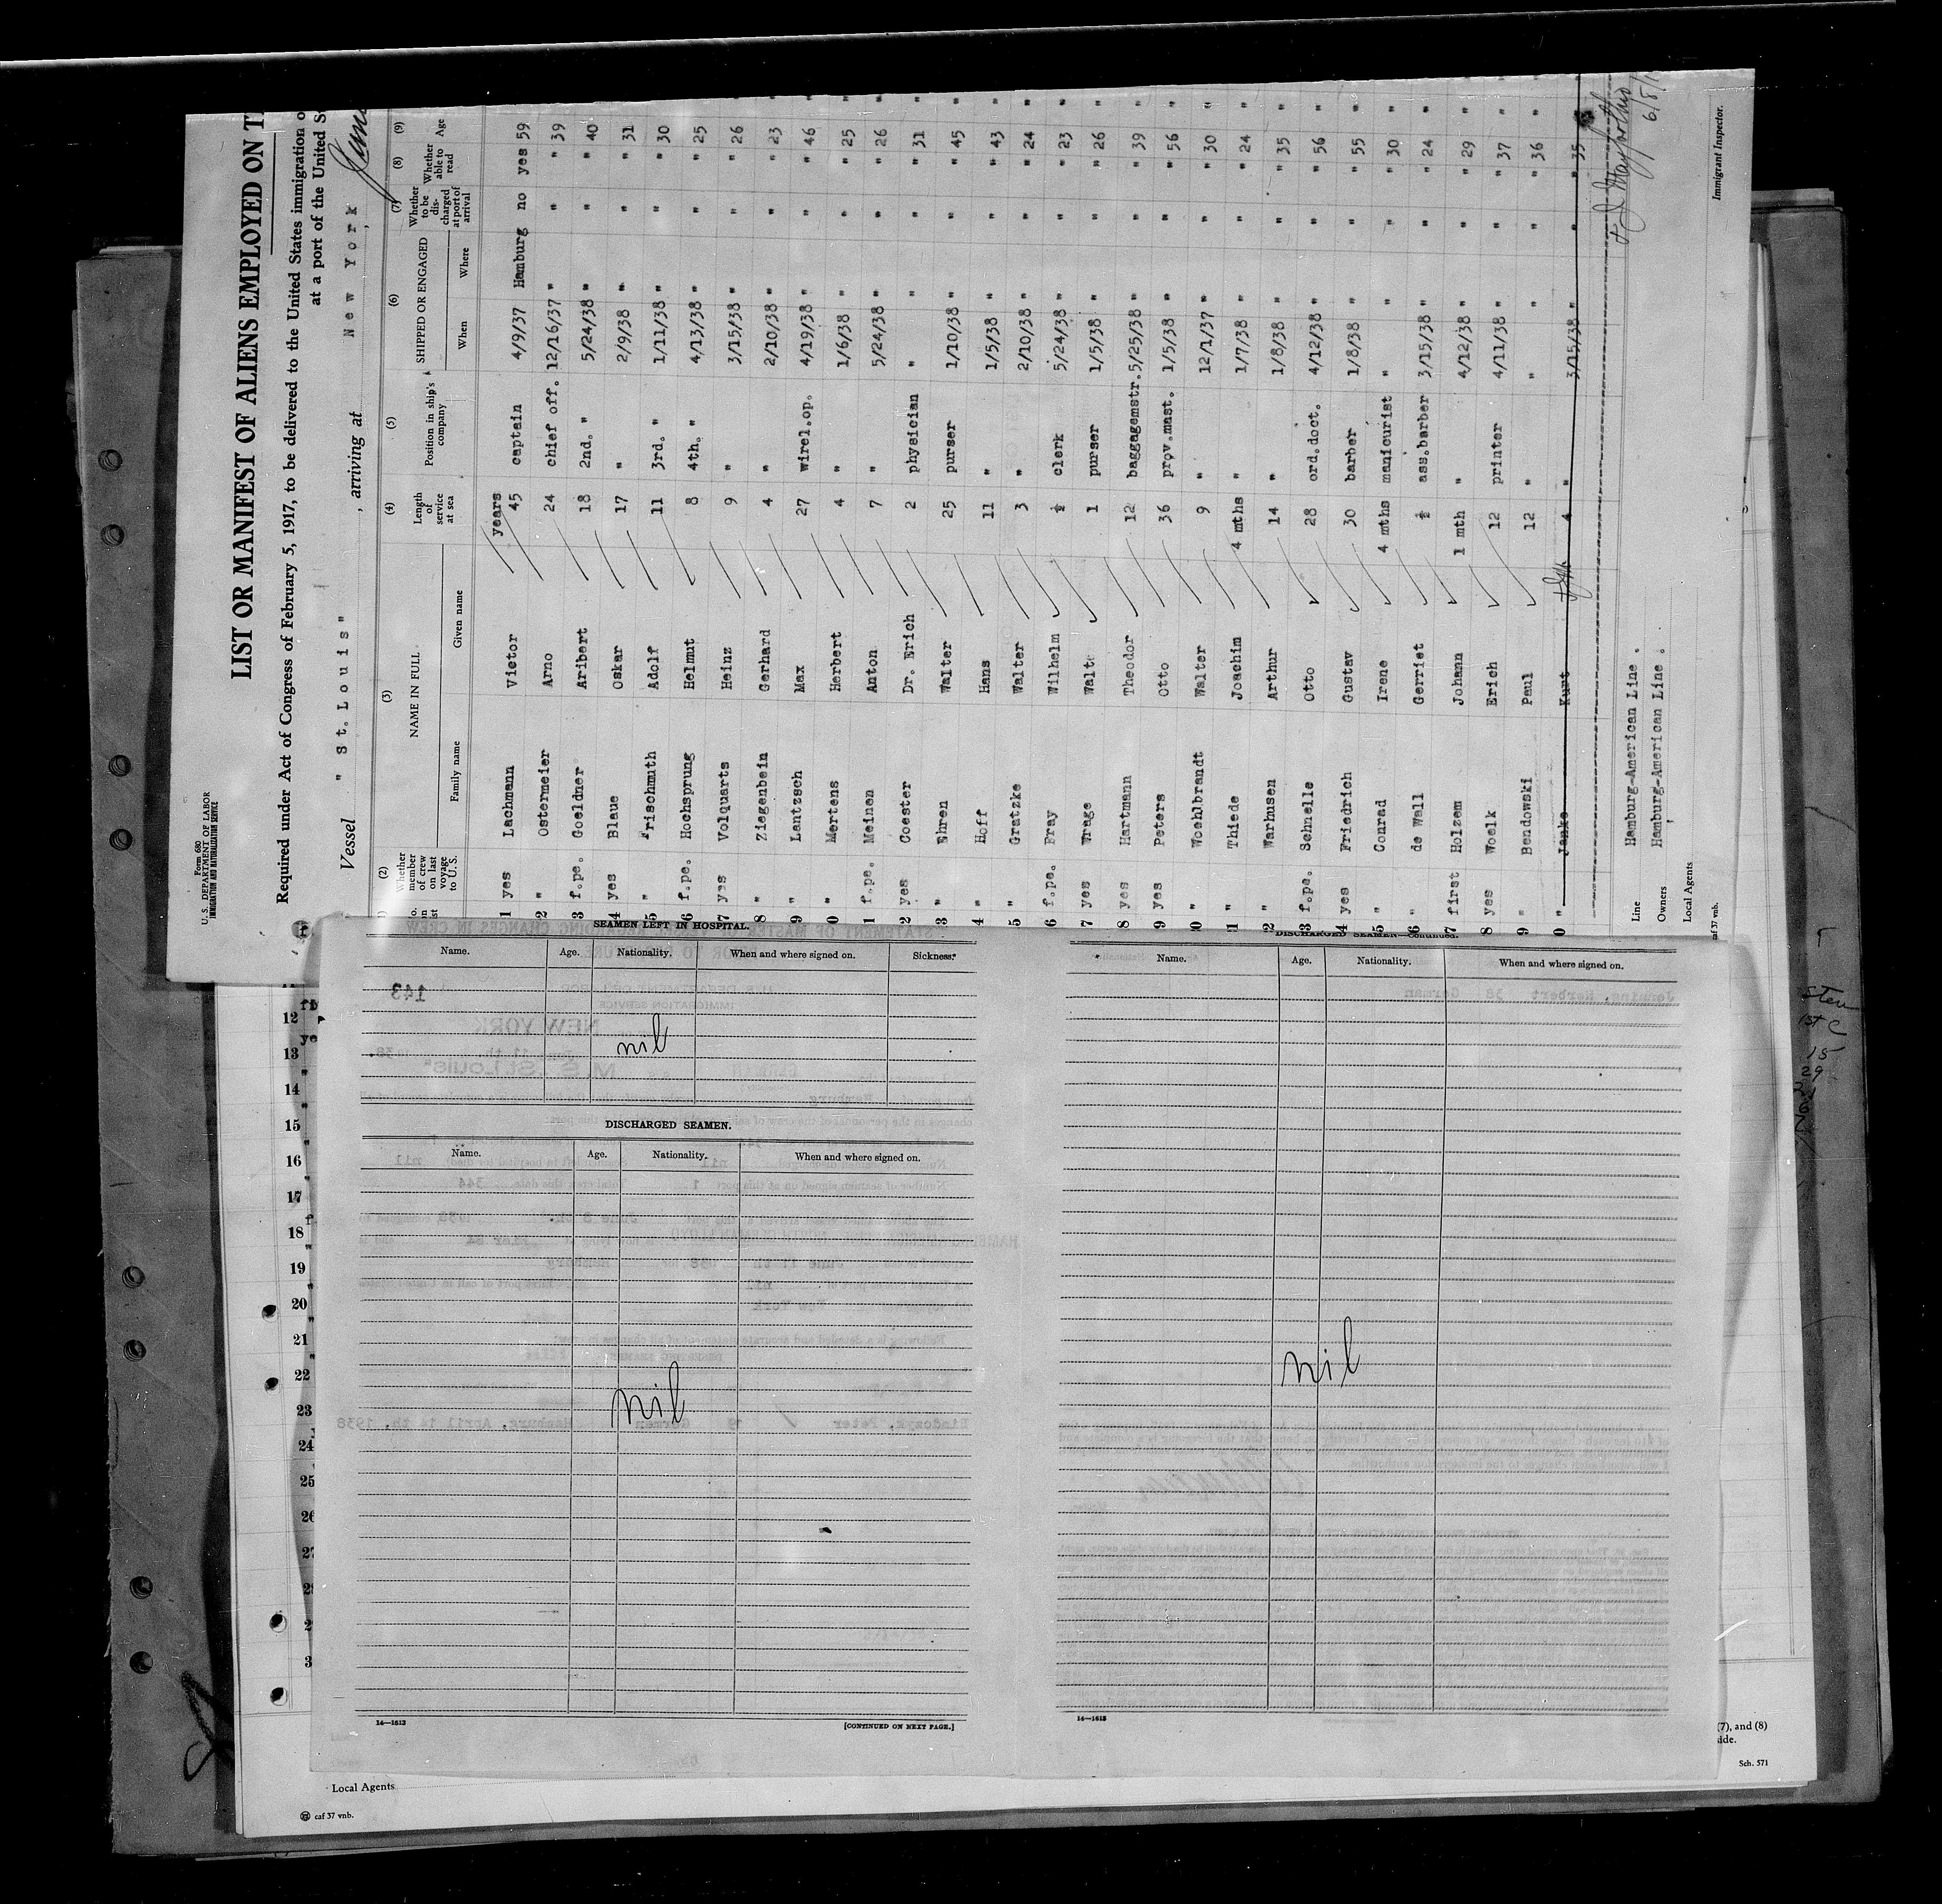 Form 680
U. S. DEPARTMENT OF LABOR
IMMIGRATION AND NATURALIZATION SERVICE
LIST OR MANIFEST OF ALIENS EMPLOYED ON T
Required under Act of Congress of February 5, 1917, to be delivered to the United States immigration o
at a port of the United S
Vessel " St. Louis " , arriving at New York ,
(2) (3) (4) (5) (6) (7) (8) (9)
Whether member of crew on last voyage to U. S. NAME IN FULL Length of service at sea Position in ship's company SHIPPED OR ENGAGED Whether to be discharged at port of arrival Whether able to read Age
Family name Given name When Where
years
1 yes Lachmann Victor 45 captain 4/9/37 Hamburg no yes 59
2 " Ostermeier Arno 24 chief off. 12/16/37 " " " 39
3 f.pe. Goeldner Aribert 18 2nd. " 5/24/38 " " " 40
4 yes Blaue Oskar 17 " 2/9/38 " " " 31
5 " Frischmuth Adolf 11 3rd. " 1/11/38 " " " 30
6 f.pe. Hochsprung Helmut 8 4th. " 4/13/38 " " " 25
7 yes Volquarts Heinz 9 " 3/15/38 " " " 26
8 " Ziegenbein Gerhard 4 " 2/10/38 " " " 23
9 " Lantzsch Max 27 wirel.op. 4/19/38 " " " 46
0 " Mertens Herbert 4 " 1/6/38 " " " 25
1 f.pe. Meinen Anton 7 " 5/24/38 " " " 26
2 yes Coester Dr. Erich 2 physician " " " " 31
3 " Ehren Walter 25 purser 1/10/38 " " " 45
4 " Hoff Hans 11 " 1/5/38 " " " 43
5 " Gratzke Walter 3 " 2/10/38 " " " 24
6 f.pe. Fray Wilhelm ½ clerk 5/24/38 " " " 23
7 yes Wrage Walt 1 purser 1/5/38 " " " 26
8 yes Hartmann Theodor 12 baggagemstr. 5/25/38 " " " 39
9 yes Peters Otto 36 prov.mast. 1/5/38 " " " 56
0 " Woehlbrandt Walter 9 " 12/1/37 " " " 30
1 " Thiede Joachim 4 mths " 1/7/38 " " " 24
2 " Warhusen Arthur 14 " 1/8/38 " " " 35
3 f.pe. Schnelle Otto 28 ord.doct. 4/12/38 " " " 56
4 yes Friedrich Gustav 30 barber 1/8/38 " " " 55
5 " Conrad Irene 4 mths manicurist " " " " 30
6 " de Wall Gerriet ½ ass.barber 3/15/38 " " " 24
7 first Holzem Johann 1 mth " 4/12/38 " " " 29
8 yes Woelk Erich 12 printer 4/11/38 " " " 37
9 " Bendowski Paul 12 " " " " " 36
0 " Janke Kurt 4 " 3/15/38 " " " 35
Line Hamburg-American Line .
Owners Hamburg-American Line .
Local Agents
caf 37 vnb.
Immigrant Inspector.
SEAMEN LEFT IN HOSPITAL.
Name. Age. Nationality. When and where signed on. Sickness.
nil
DISCHARGED SEAMEN.
Name. Age. Nationality. When and where signed on.
nil
14—1613
[CONTINUED ON NEXT PAGE.]
DISCHARGED SEAMEN—Continued.
Name. Age. Nationality. When and where signed on.
nil
14—1613
12
13
14
15
16
17
18
19
20
21
22
23
24
25
26
(7), and (8)
side.
Sch. 571
Local Agents
caf 37 vnb.